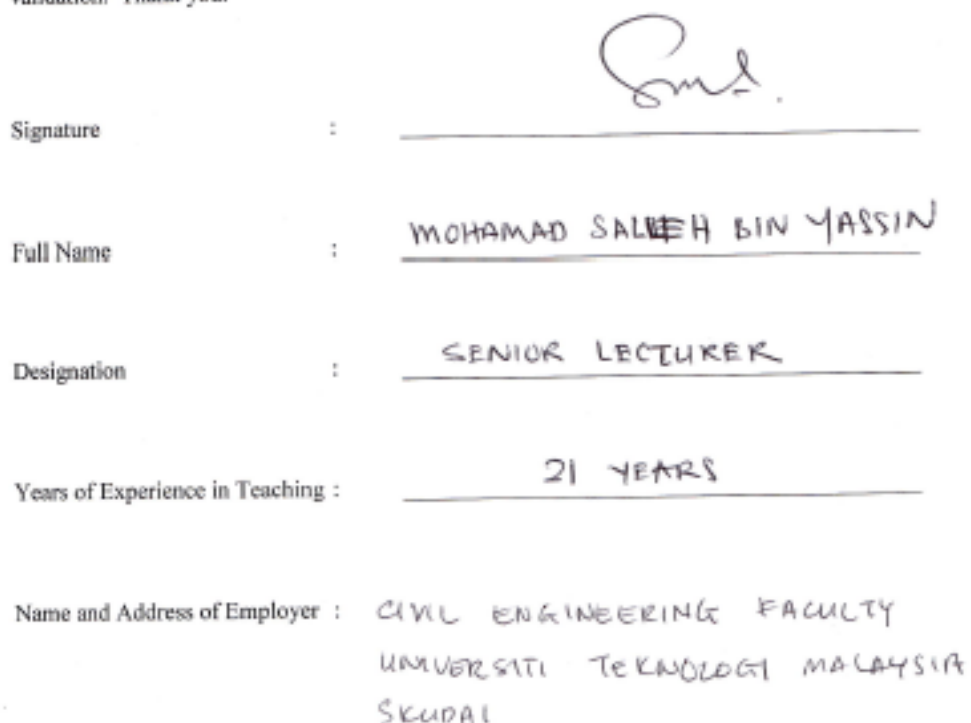 validation. Thank you.
Signature :
Full Name : MOHAMAD SALLEH BIN YASSIN
Designation : SENIOR LECTURER
Years of Experience in Teaching : 21 YEARS
Name and Address of Employer : CIVIL ENGINEERING FACULTY
UNIVERSITI TEKNOLOGI MALAYSIA
SKUDAI